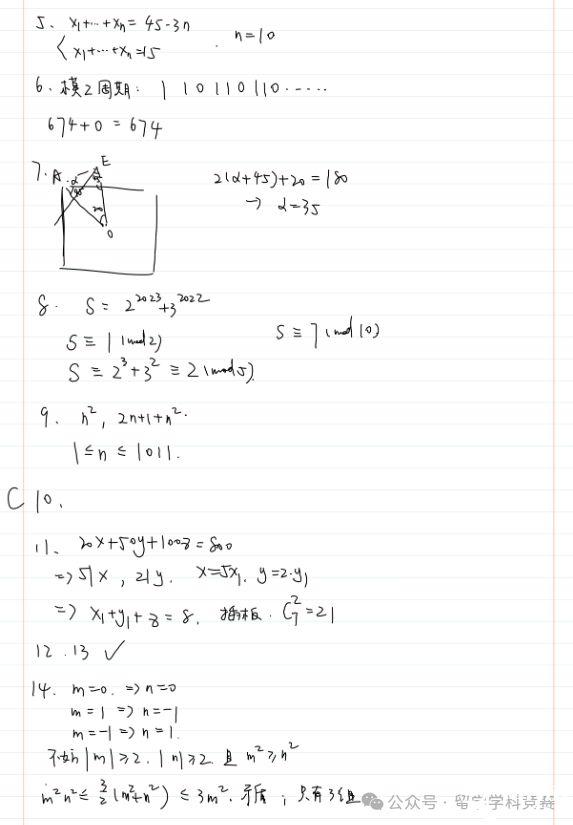 5、 x₁+⋯+xₙ = 45-3n
x₁+⋯+xₙ=15 n=10
6、模2周期: 1 1 0 1 1 0 1 1 0 ⋯⋯
674+0=674
7. A α E
45
20
O
2(α+45)+20=180
→ α=35
8. S = 2²⁰²³+3²⁰²²
S ≡ 1 (mod 2) S ≡ 7 (mod 10)
S ≡ 2³+3² ≡ 2 (mod 5).
9. n², 2n+1+n².
1≤n≤1011.
C 10.
11、 20x+50y+100z=800
=> 5|x , 2|y. x=5x₁. y=2·y₁
=> x₁+y₁+z=8. 插板. C₇²=21
12.13 ✓
14. m=0. => n=0
m=1 => n=-1
m=-1 => n=1.
不妨|m|≥2. |n|≥2 且 m²≥n²
m²n²≤ 3/2(m²+n²) ≤3m². 矛盾; 只有3组
公众号·留学学科竞赛